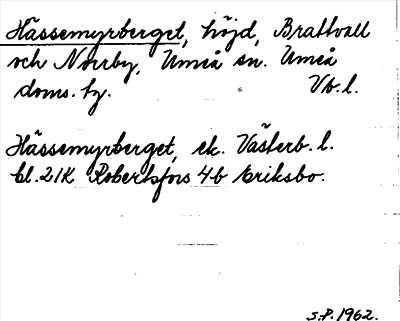 Hässemyrberget, höjd, Brattvall
och Norrby, Umeå sn. Umeå
doms. tg. Vb. l.
Hässemyrberget, ek. Västerb. l.
bl. 21K Robertsfors 4b Eriksbo.
S.P. 1962.